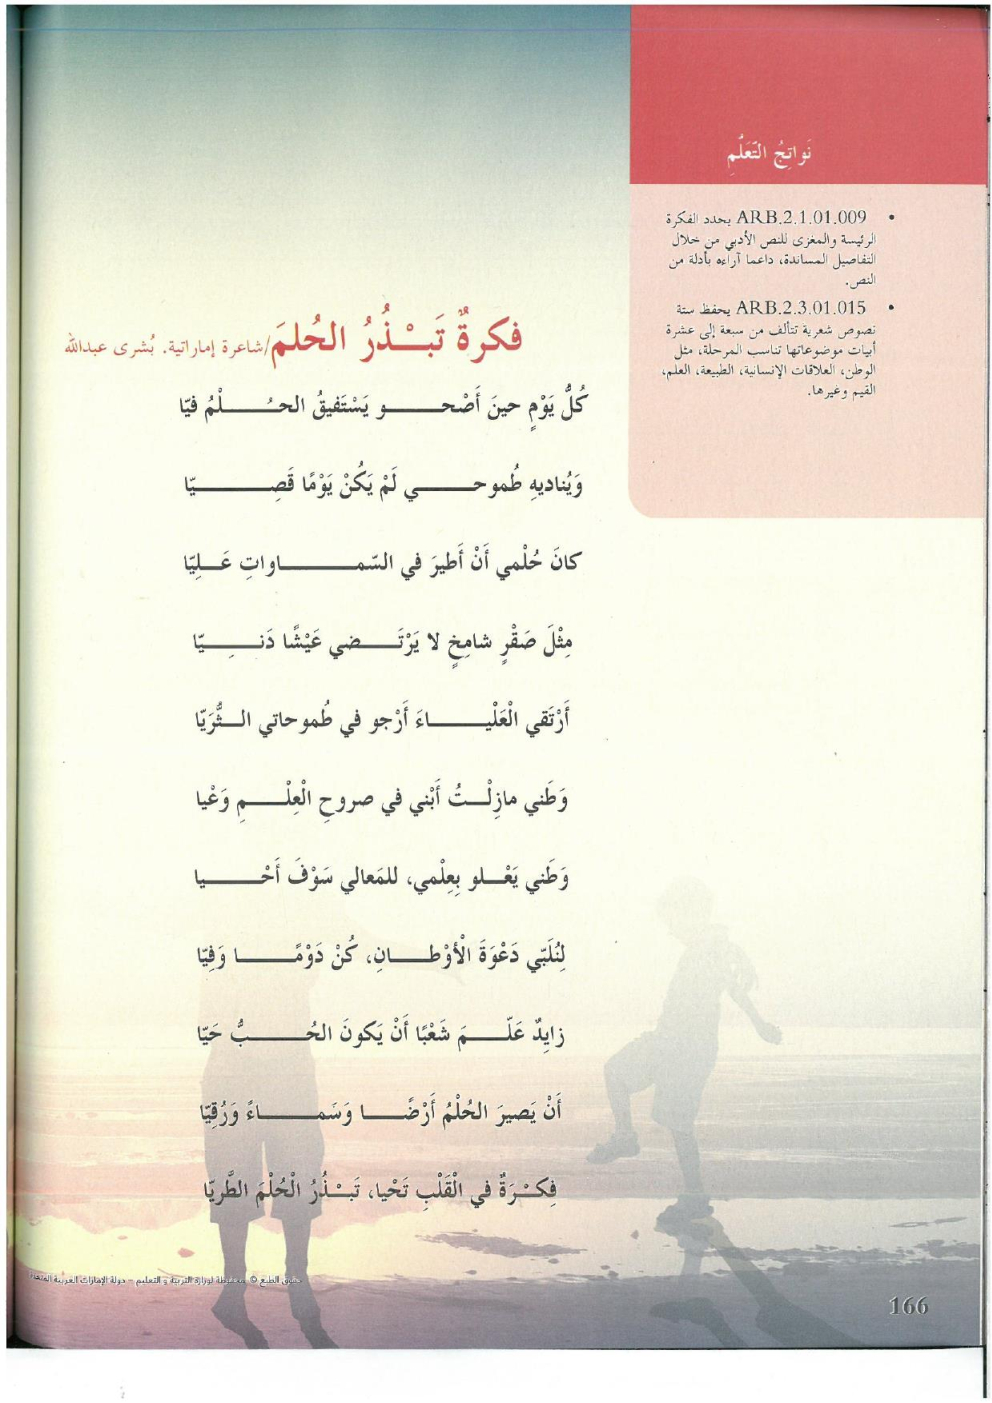 نَواتِجُ التَّعَلُّمِ
• ARB.2.1.01.009 يحدد الفكرة
الرئيسة والمغزى للنص الأدبي من خلال
التفاصيل المساندة، داعما آراءه بأدلة من
النص.
• ARB.2.3.01.015 يحفظ ستة
نصوص شعرية تتألف من سبعة إلى عشرة
أبيات موضوعاتها تناسب المرحلة، مثل
الوطن، العلاقات الإنسانية، الطبيعة، العلم،
القيم وغيرها.
فكرةٌ تَبْذُرُ الحُلمَ/شاعرة إماراتية. بُشرى عبدالله
كُلُّ يَوْمٍ حينَ أَصْحو يَسْتَفيقُ الحُلْمُ فيّا
وَيُناديهِ طُموحي لَمْ يَكُنْ يَوْمًا قَصِيّا
كانَ حُلْمي أَنْ أَطيرَ في السّماواتِ عَلِيّا
مِثْلَ صَقْرٍ شامِخٍ لا يَرْتَضي عَيْشًا دَنِيّا
أَرْتَقي الْعَلْياءَ أَرْجو في طُموحاتي الثُّرَيّا
وَطَني مازِلْتُ أَبْني في صروحِ الْعِلْمِ وَعْيا
وَطَني يَعْلو بِعِلْمي، للمَعالي سَوْفَ أَحْيا
لِنُلَبّي دَعْوَةَ الْأَوْطانِ، كُنْ دَوْمًا وَفِيّا
زايِدٌ عَلّمَ شَعْبًا أَنْ يَكونَ الحُبُّ حَيّا
أَنْ يَصيرَ الحُلْمُ أَرْضًا وَسَماءً وَرُقِيّا
فِكْرَةٌ في الْقَلْبِ تَحْيا، تَبْذُرُ الْحُلْمَ الطَّرِيّا
حقوق الطبع © محفوظة لوزارة التربية و التعليم - دولة الإمارات العربية المتحدة
166